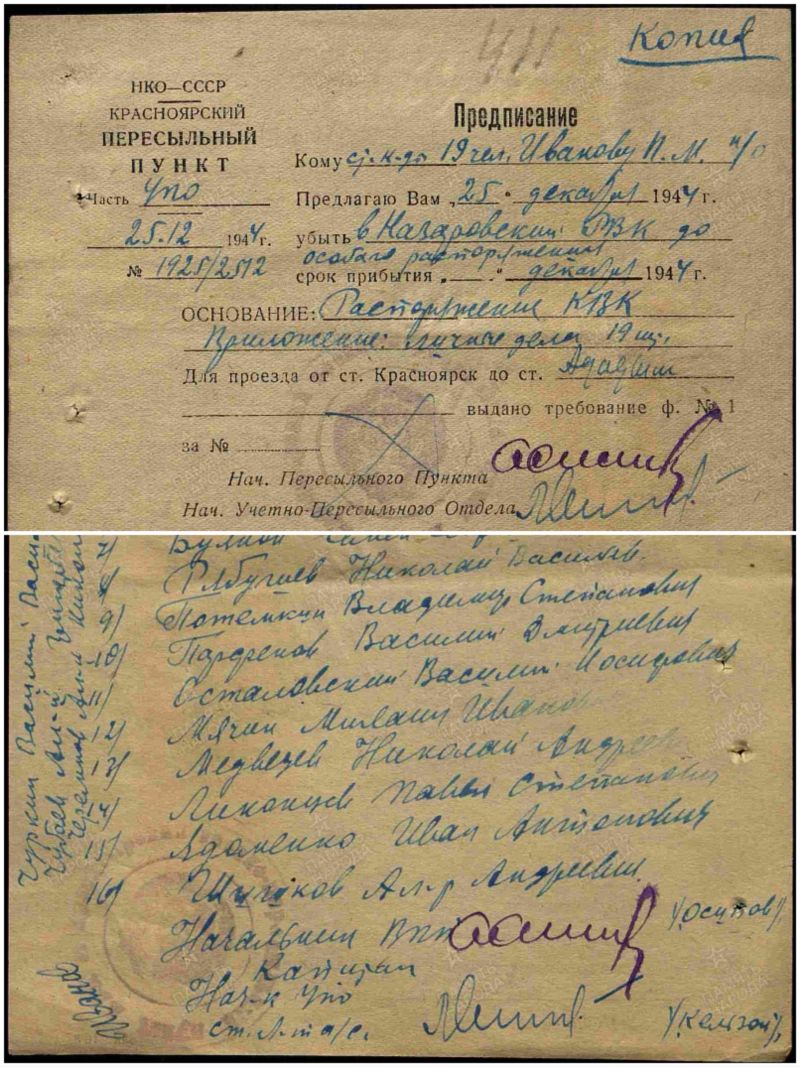 Копия
НКО—СССР
КРАСНОЯРСКИЙ
ПЕРЕСЫЛЬНЫЙ
ПУНКТ
Часть Упо
25.12 1944 г.
№ 1925/2512
Предписание
Кому ст. к-ды 19 чел. Иванову П. М.
Предлагаю Вам „25“ декабря 1944 г.
убыть в Назаровский РВК до
особого распоряжения
срок прибытия „ “ декабря 1944 г.
ОСНОВАНИЕ: Распоряжение КВК
Приложение: личные дела 19 шт.
Для проезда от ст. Красноярск до ст. Ададым
выдано требование ф. № 1
за №
Нач. Пересыльного Пункта
Нач. Учетно-Пересыльного Отдела
7)
8) Николай Васильев.
9) Потемкин Владимир Степанович
10) Парфенов Василий Дмитриевич
11) Осталовский Василий Иосифович
12) Мячин Михаил Иванов
13) Медведев Николай Андреев
14) Павел Степанович
15) Ядоменко Иван Антонович
16) Ал-р Андреевич
Чуркин Василий Васи
Чубаев Ал-й
Начальник ВПП
Капитан /Осипов/
Нач-к Упо
ст. л-т а/с.
Иванов